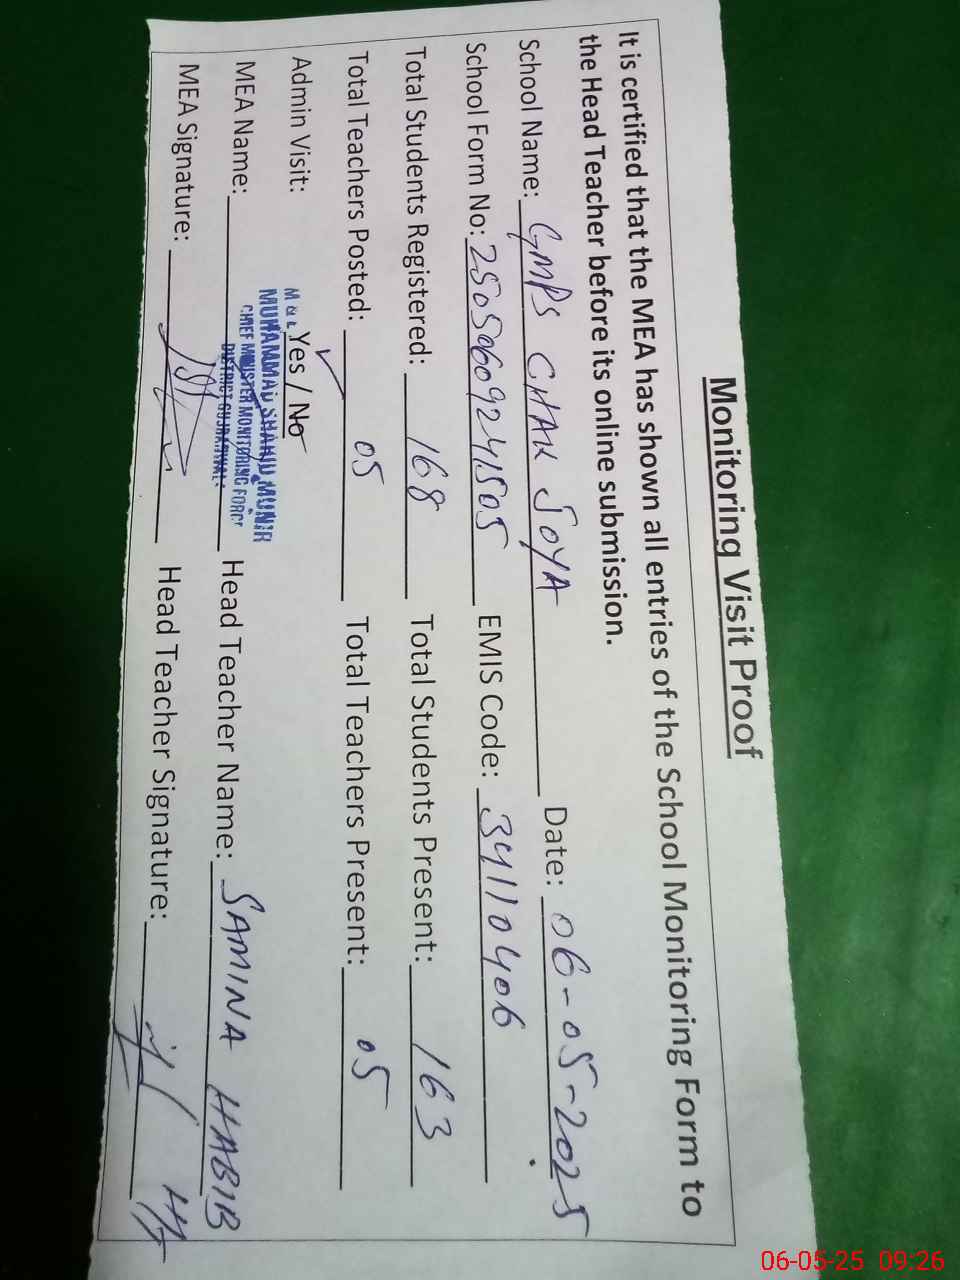 Monitoring Visit Proof
It is certified that the MEA has shown all entries of the School Monitoring Form to
the Head Teacher before its online submission.
School Name: GMPS CHAK JOYA Date: 06-05-2025
School Form No: 25050609241505 EMIS Code: 34110406
Total Students Registered: 168 Total Students Present: 163
Total Teachers Posted: 05 Total Teachers Present: 05
Admin Visit: Yes / No
MEA Name: MUHAMMAD SHAHID MUNIR Head Teacher Name: SAMINA HABIB
CHIEF MINISTER MONITORING FORCE
DISTRICT GUJRANWALA
MEA Signature: Head Teacher Signature:
06-05-25 09:26